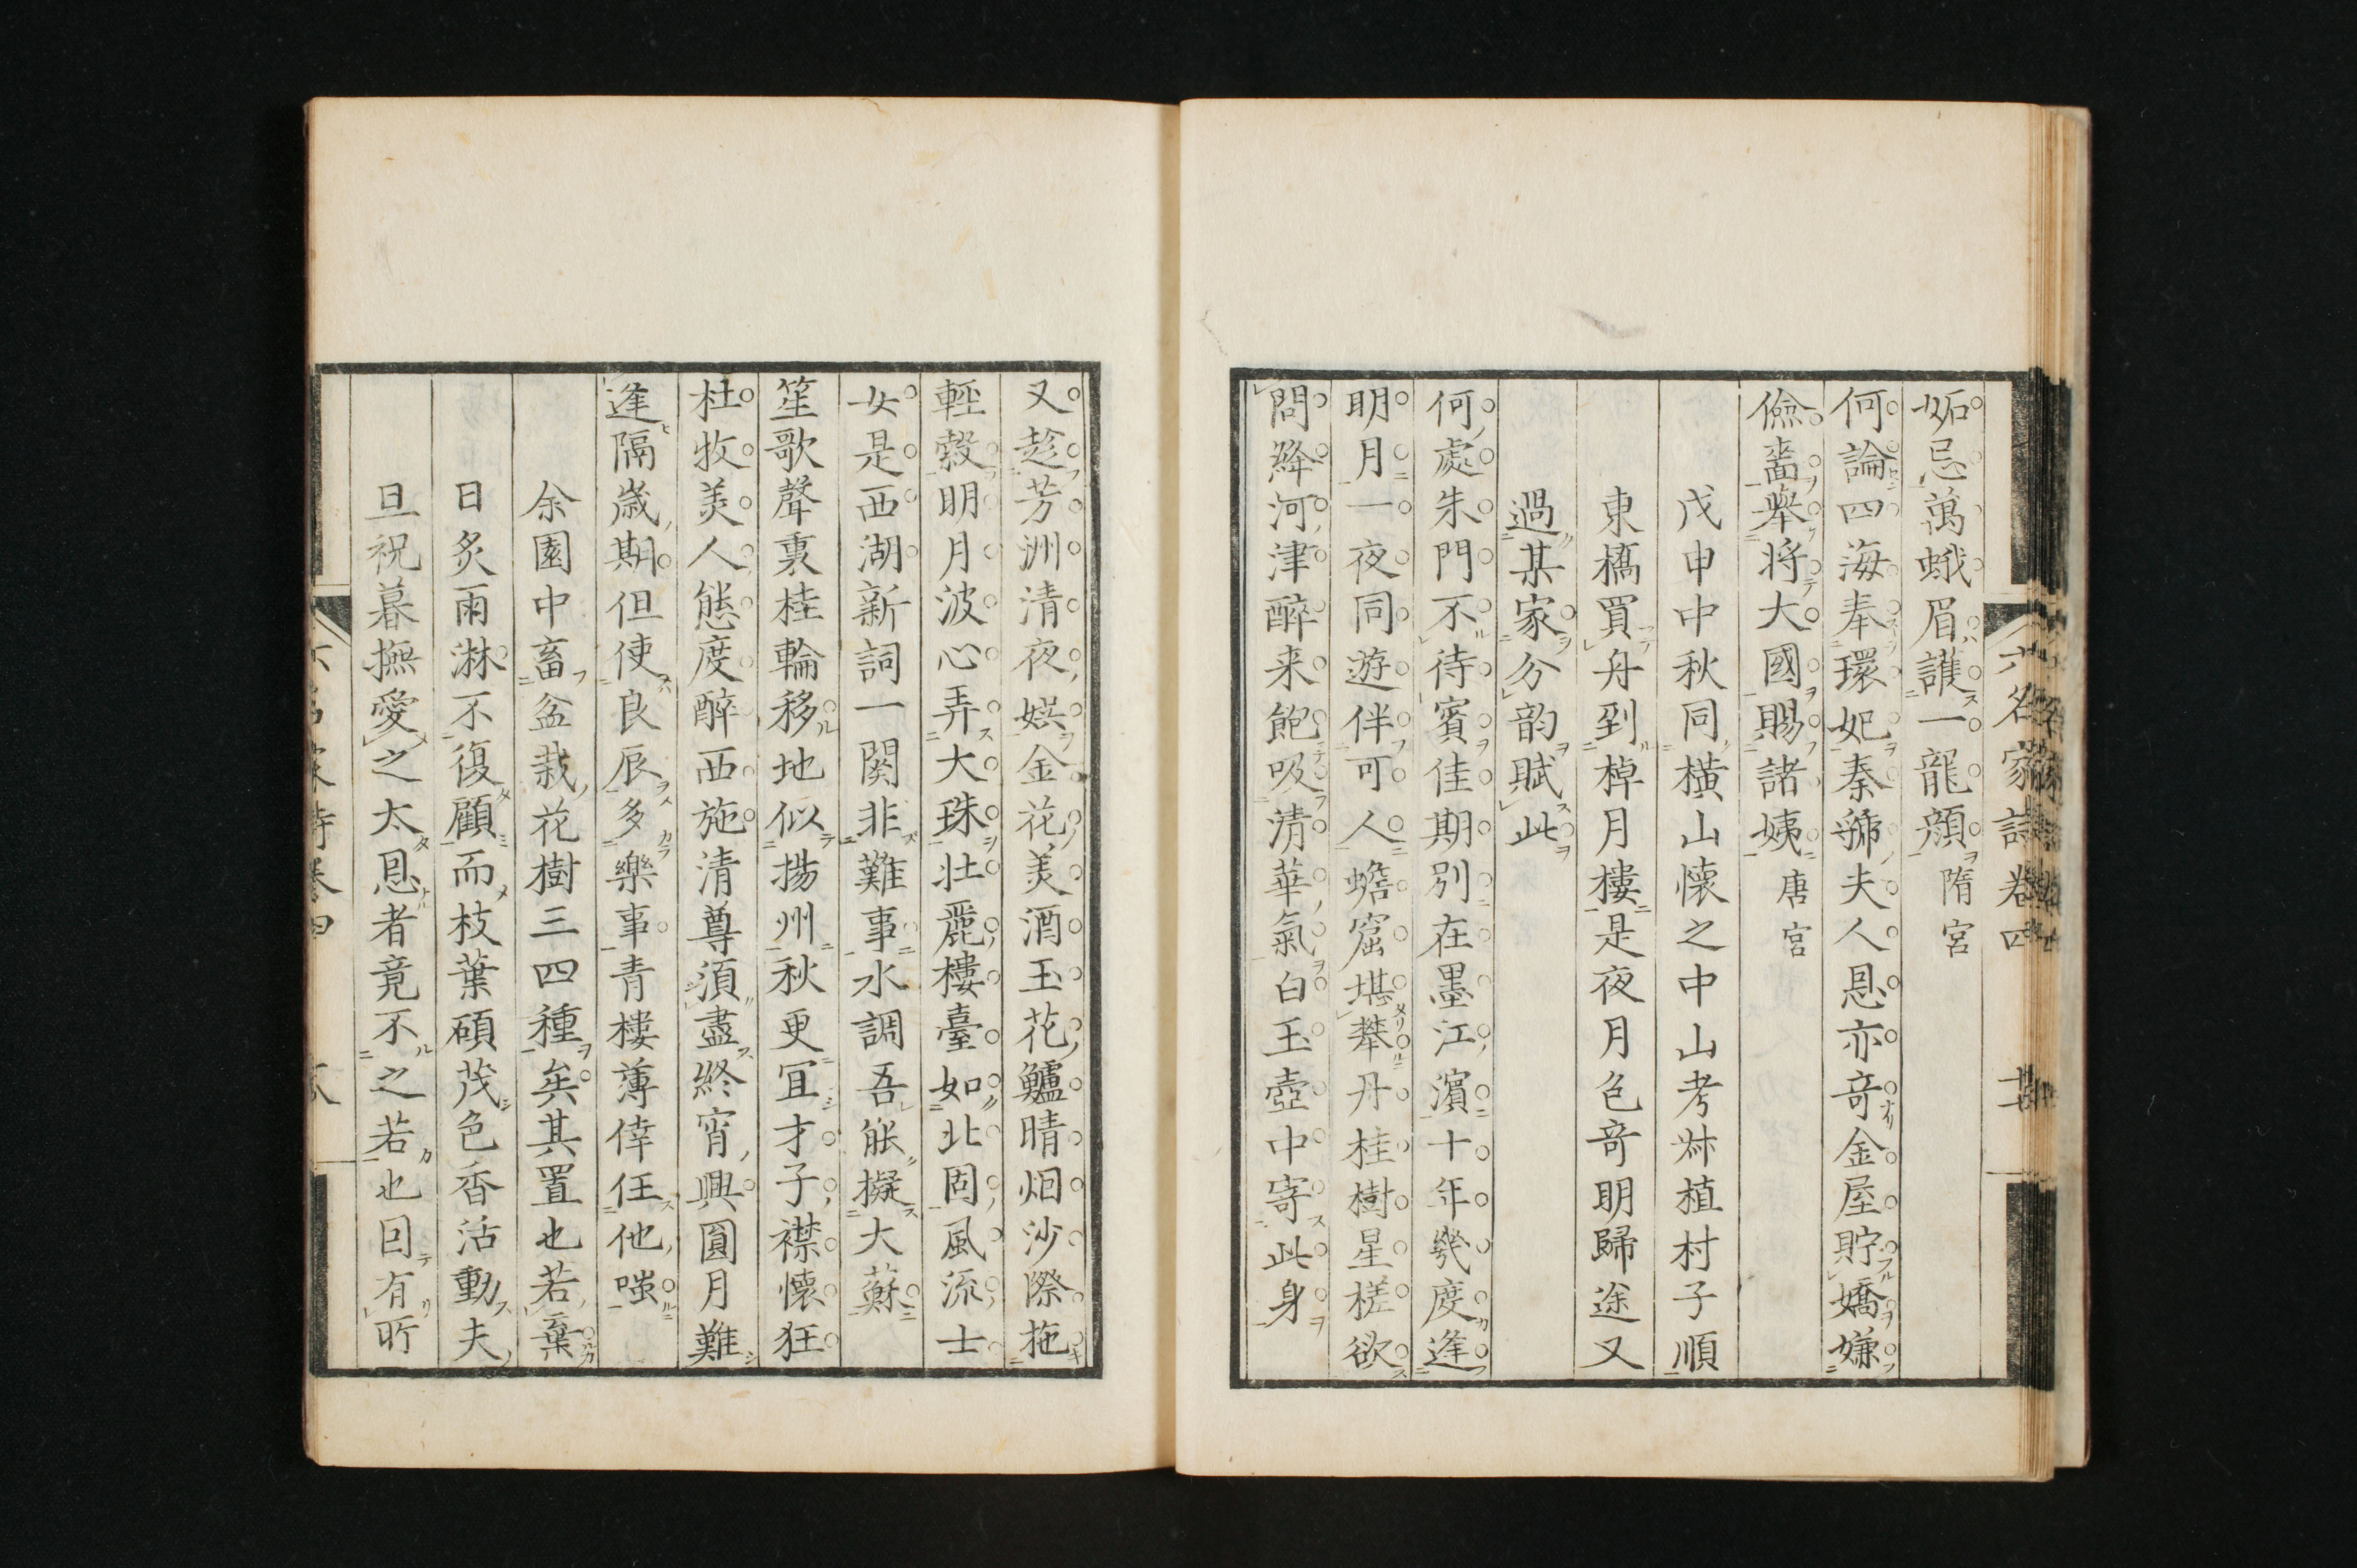 六名家詩卷四
妬忌萬蛾眉護一龍顏 隋宮
何論四海奉環妃秦虢夫人恩亦竒金屋貯嬌嫌
儉嗇舉將大國賜諸姨 唐宮
戊申中秋同橫山懷之中山考叔植村子順
東橋買舟到棹月樓是夜月色竒明歸途又
過某家分韵賦此
何處朱門不待賓佳期別在墨江濱十年幾度逢
明月一夜同遊伴可人蟾窟堪攀丹桂樹星槎欲
問絳河津醉来飽吸清華氣白玉壺中寄此身
又趁芳洲清夜娯金花美酒玉花鱸晴烟沙際拖
輕縠明月波心弄大珠壯麗樓臺如北固風流士
女是西湖新詞一闋非難事水調吾能擬大蘇
笙歌聲裏桂輪移地似揚州秋更冝才子襟懷狂
杜牧美人態度醉西施清尊須盡終宵興圓月難
逢隔歳期但使良辰多樂事青樓薄倖任他嗤
余園中畜盆栽花樹三四種矣其置也若棄
日炙雨淋不復顧而枝葉碩茂色香活動夫
旦視暮撫愛之太恩者竟不之若也因有所